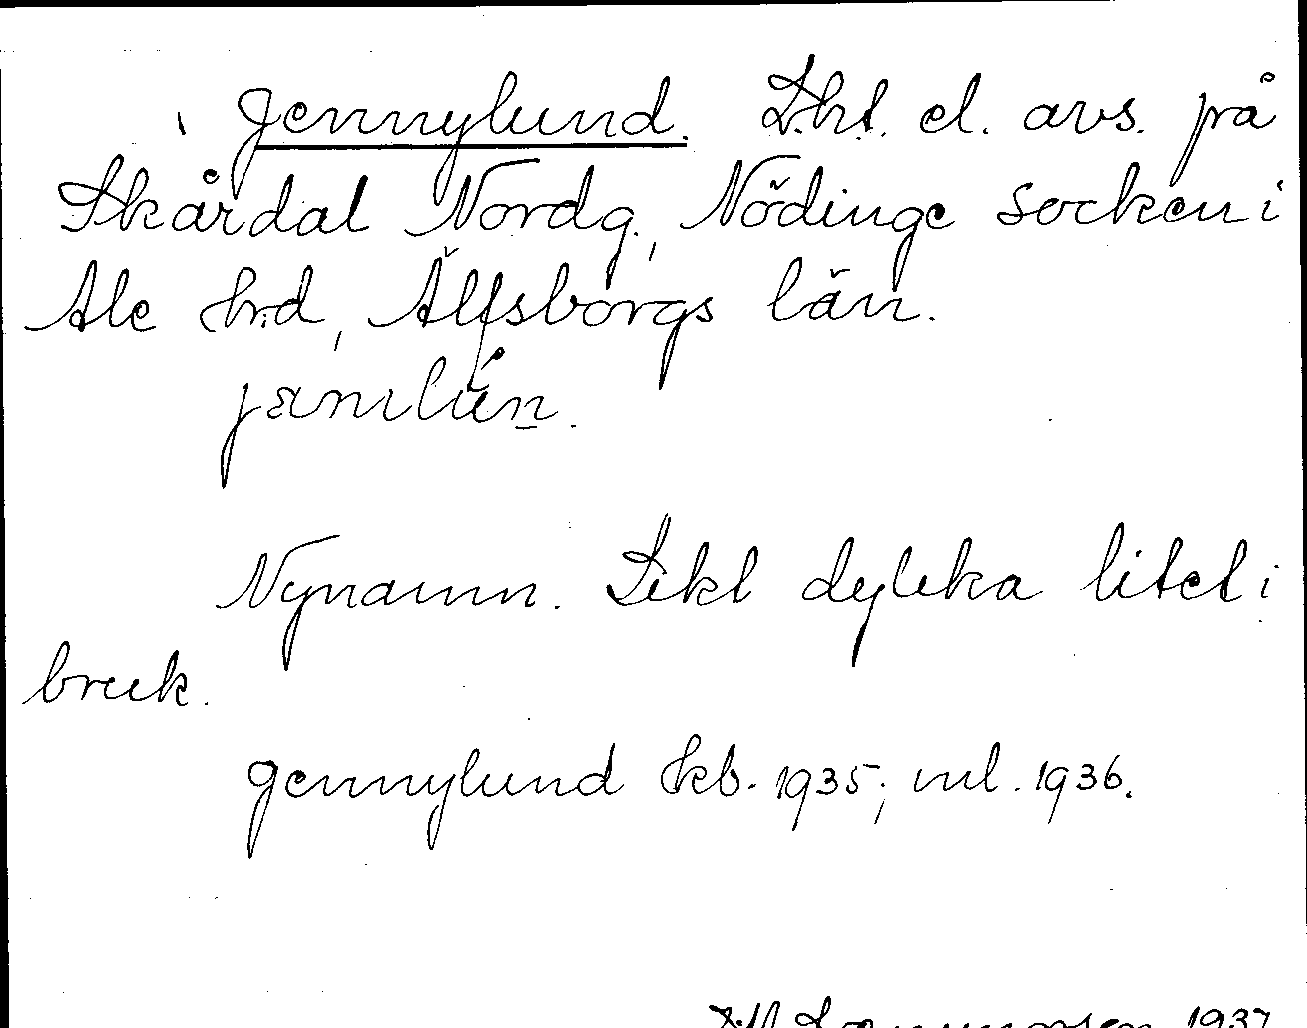 Jennylund. Lht. el. avs. på
Skårdal Nordg., Nödinge socken i
Ale hrd, Älfsborgs län.
Nynamn. Sikl dylika litet i
bruk.
Jennylund kb. 1935; ml. 1936.
1937